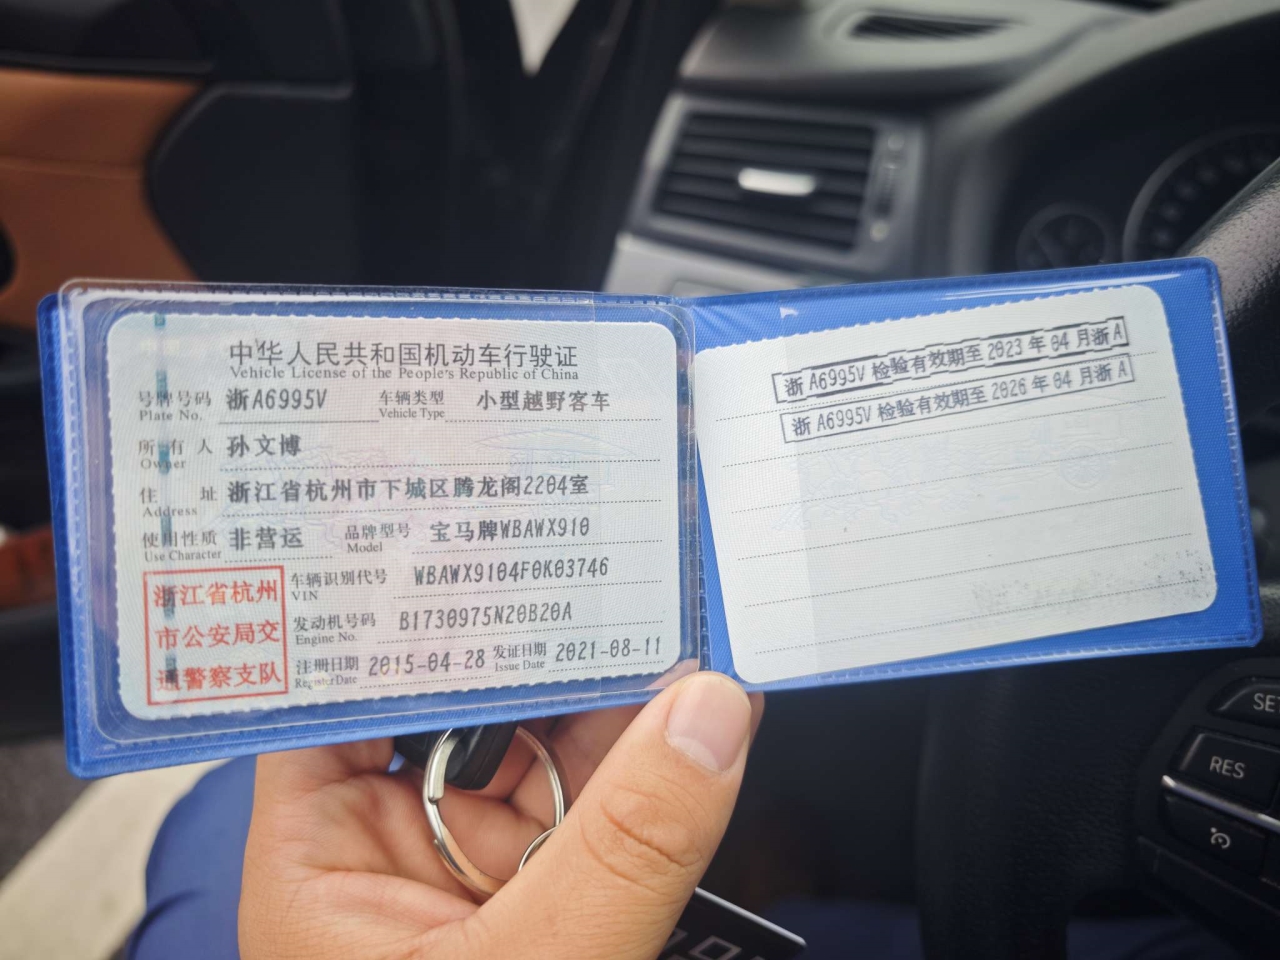 中华人民共和国机动车行驶证
Vehicle License of the People's Republic of China
号牌号码 浙A6995V 车辆类型 小型越野客车
Plate No. Vehicle Type
所有人 孙文博
Owner
住址 浙江省杭州市下城区腾龙阁2204室
Address
使用性质 非营运 品牌型号 宝马牌WBAWX910
Use Character Model
浙江省杭州
市公安局交
通警察支队
车辆识别代号 WBAWX9104F0K03746
VIN
发动机号码 B1730975N20B20A
Engine No.
注册日期 2015-04-28 发证日期 2021-08-11
Register Date Issue Date
浙A6995V 检验有效期至 2023 年 04 月浙A
浙A6995V 检验有效期至 2026 年 04 月浙A
SE
RES